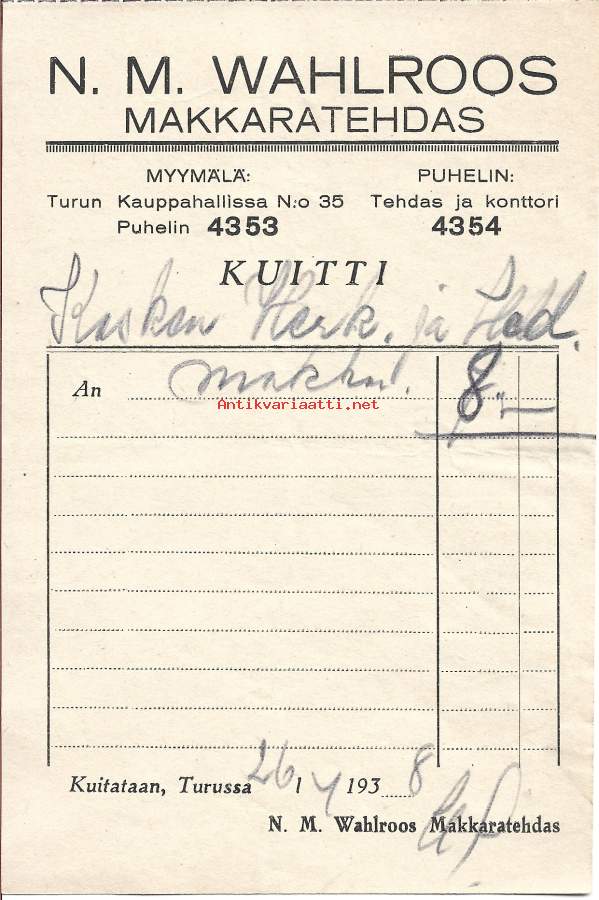 N. M. WAHLROOS
MAKKARATEHDAS
MYYMÄLÄ: PUHELIN:
Turun Kauppahallissa N:o 35 Tehdas ja konttori
Puhelin 4353 4354
KUITTI
Kosken Herk. ja Hed.
An makkar. 8,-
Antikvariaatti.net
Kuitataan, Turussa 26 / 4 193 8
N. M. Wahlroos Makkaratehdas